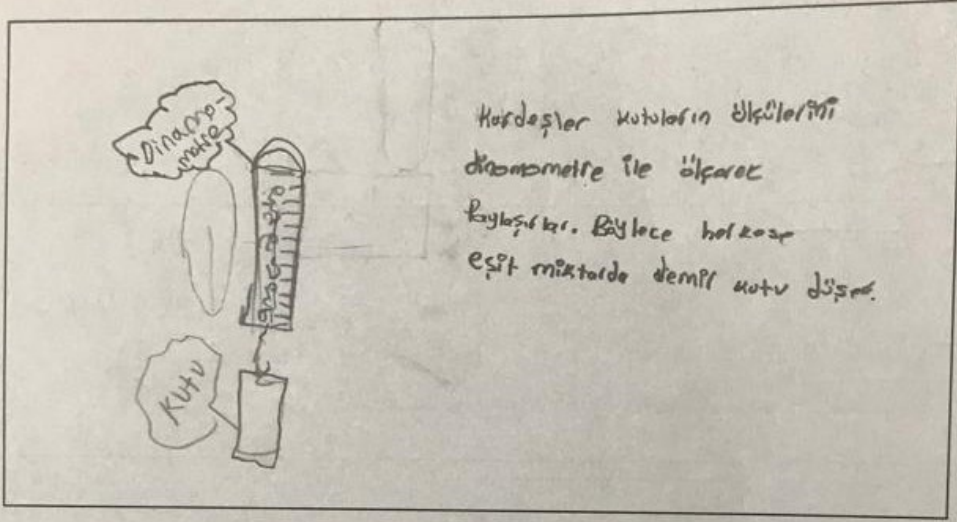 Dinamo-
metre
Kutu
Kardeşler kutuların ölçülerini
dinamometre ile ölçerek
Paylaşırlar. Böylece herkese
eşit miktarda demir kutu düşer.